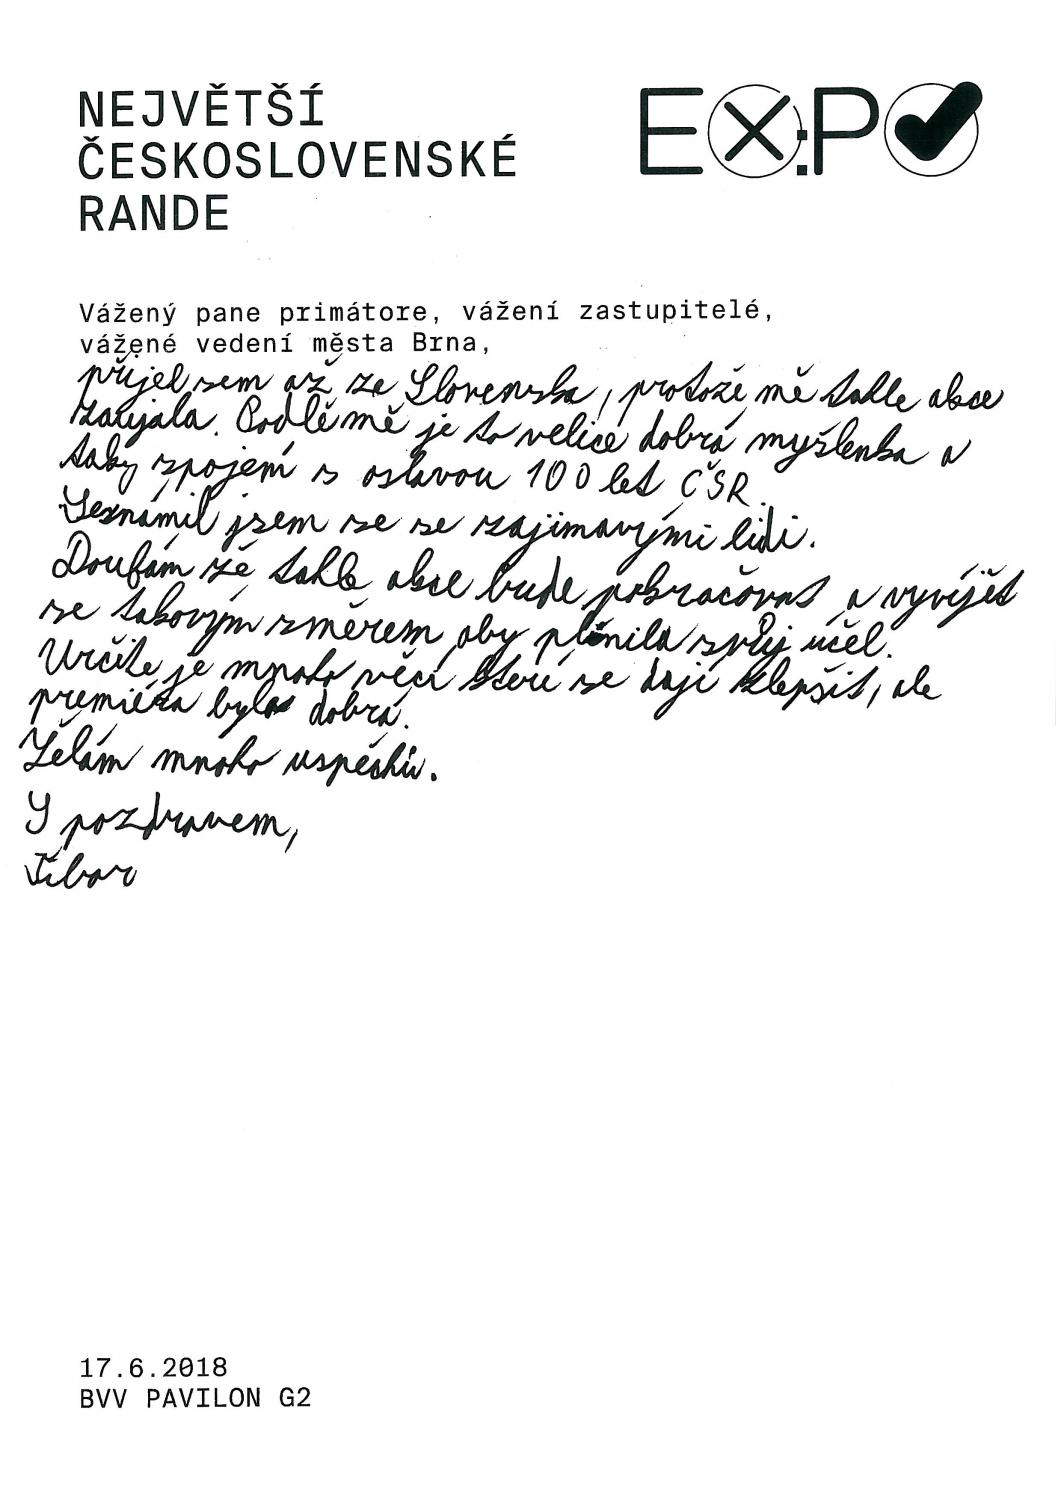 NEJVĚTŠÍ
ČESKOSLOVENSKÉ
RANDE
EX:PO
Vážený pane primátore, vážení zastupitelé,
vážené vedení města Brna,
přijel sem až ze Slovenska, protože mě tahle akce
zaujala. Podlě mě je to velice dobrá myšlenka a
taky spojení s oslavou 100 let ČSR.
Seznámil jsem se se zajimavými lidi.
Doufám že tahle akce bude pokračovat a vyvíjět
se takovým směrem aby plnila svůj účel.
Určite je mnoho věcí které se dají zlepšit, ale
premiéra byla dobrá.
Želám mnoho uspěchův.
S pozdravem,
Tibor
17.6.2018
BVV PAVILON G2